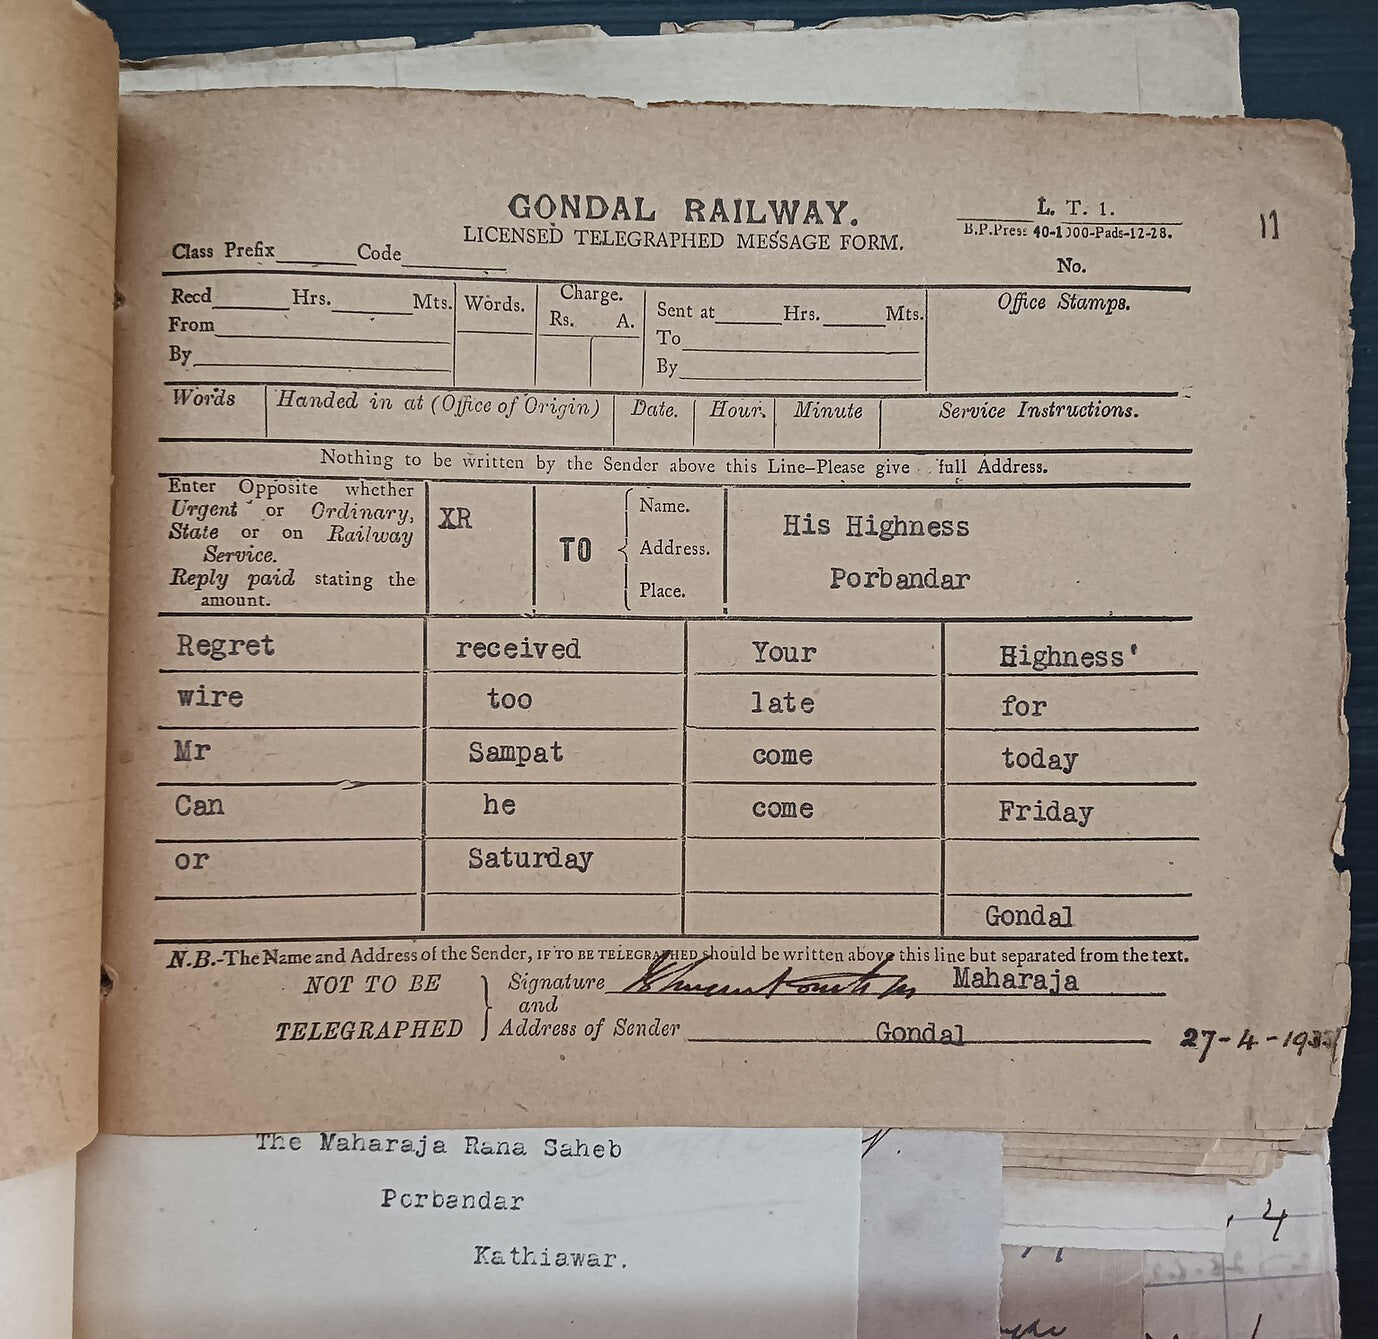 GONDAL RAILWAY.
LICENSED TELEGRAPHED MESSAGE FORM.
L. T. 1.
B.P.Press 40-1000-Pads-12-28.
11
Class Prefix Code
No.
Recd Hrs. Mts.
From
By
Words.
Charge.
Rs. A.
Sent at Hrs. Mts.
To
By
Office Stamps.
Words Handed in at (Office of Origin) Date. Hour. Minute Service Instructions.
Nothing to be written by the Sender above this Line-Please give full Address.
Enter Opposite whether
Urgent or Ordinary,
State or on Railway
Service.
Reply paid stating the
amount.
XR
TO
Name.
Address.
Place.
His Highness
Porbandar
Regret received Your Highness'
wire too late for
Mr Sampat come today
Can he come Friday
or Saturday
Gondal
N.B.-The Name and Address of the Sender, IF TO BE TELEGRAPHED should be written above this line but separated from the text.
NOT TO BE
TELEGRAPHED
Signature Maharaja
and
Address of Sender Gondal
27-4-
The Maharaja Rana Saheb
Porbandar
Kathiawar.
4